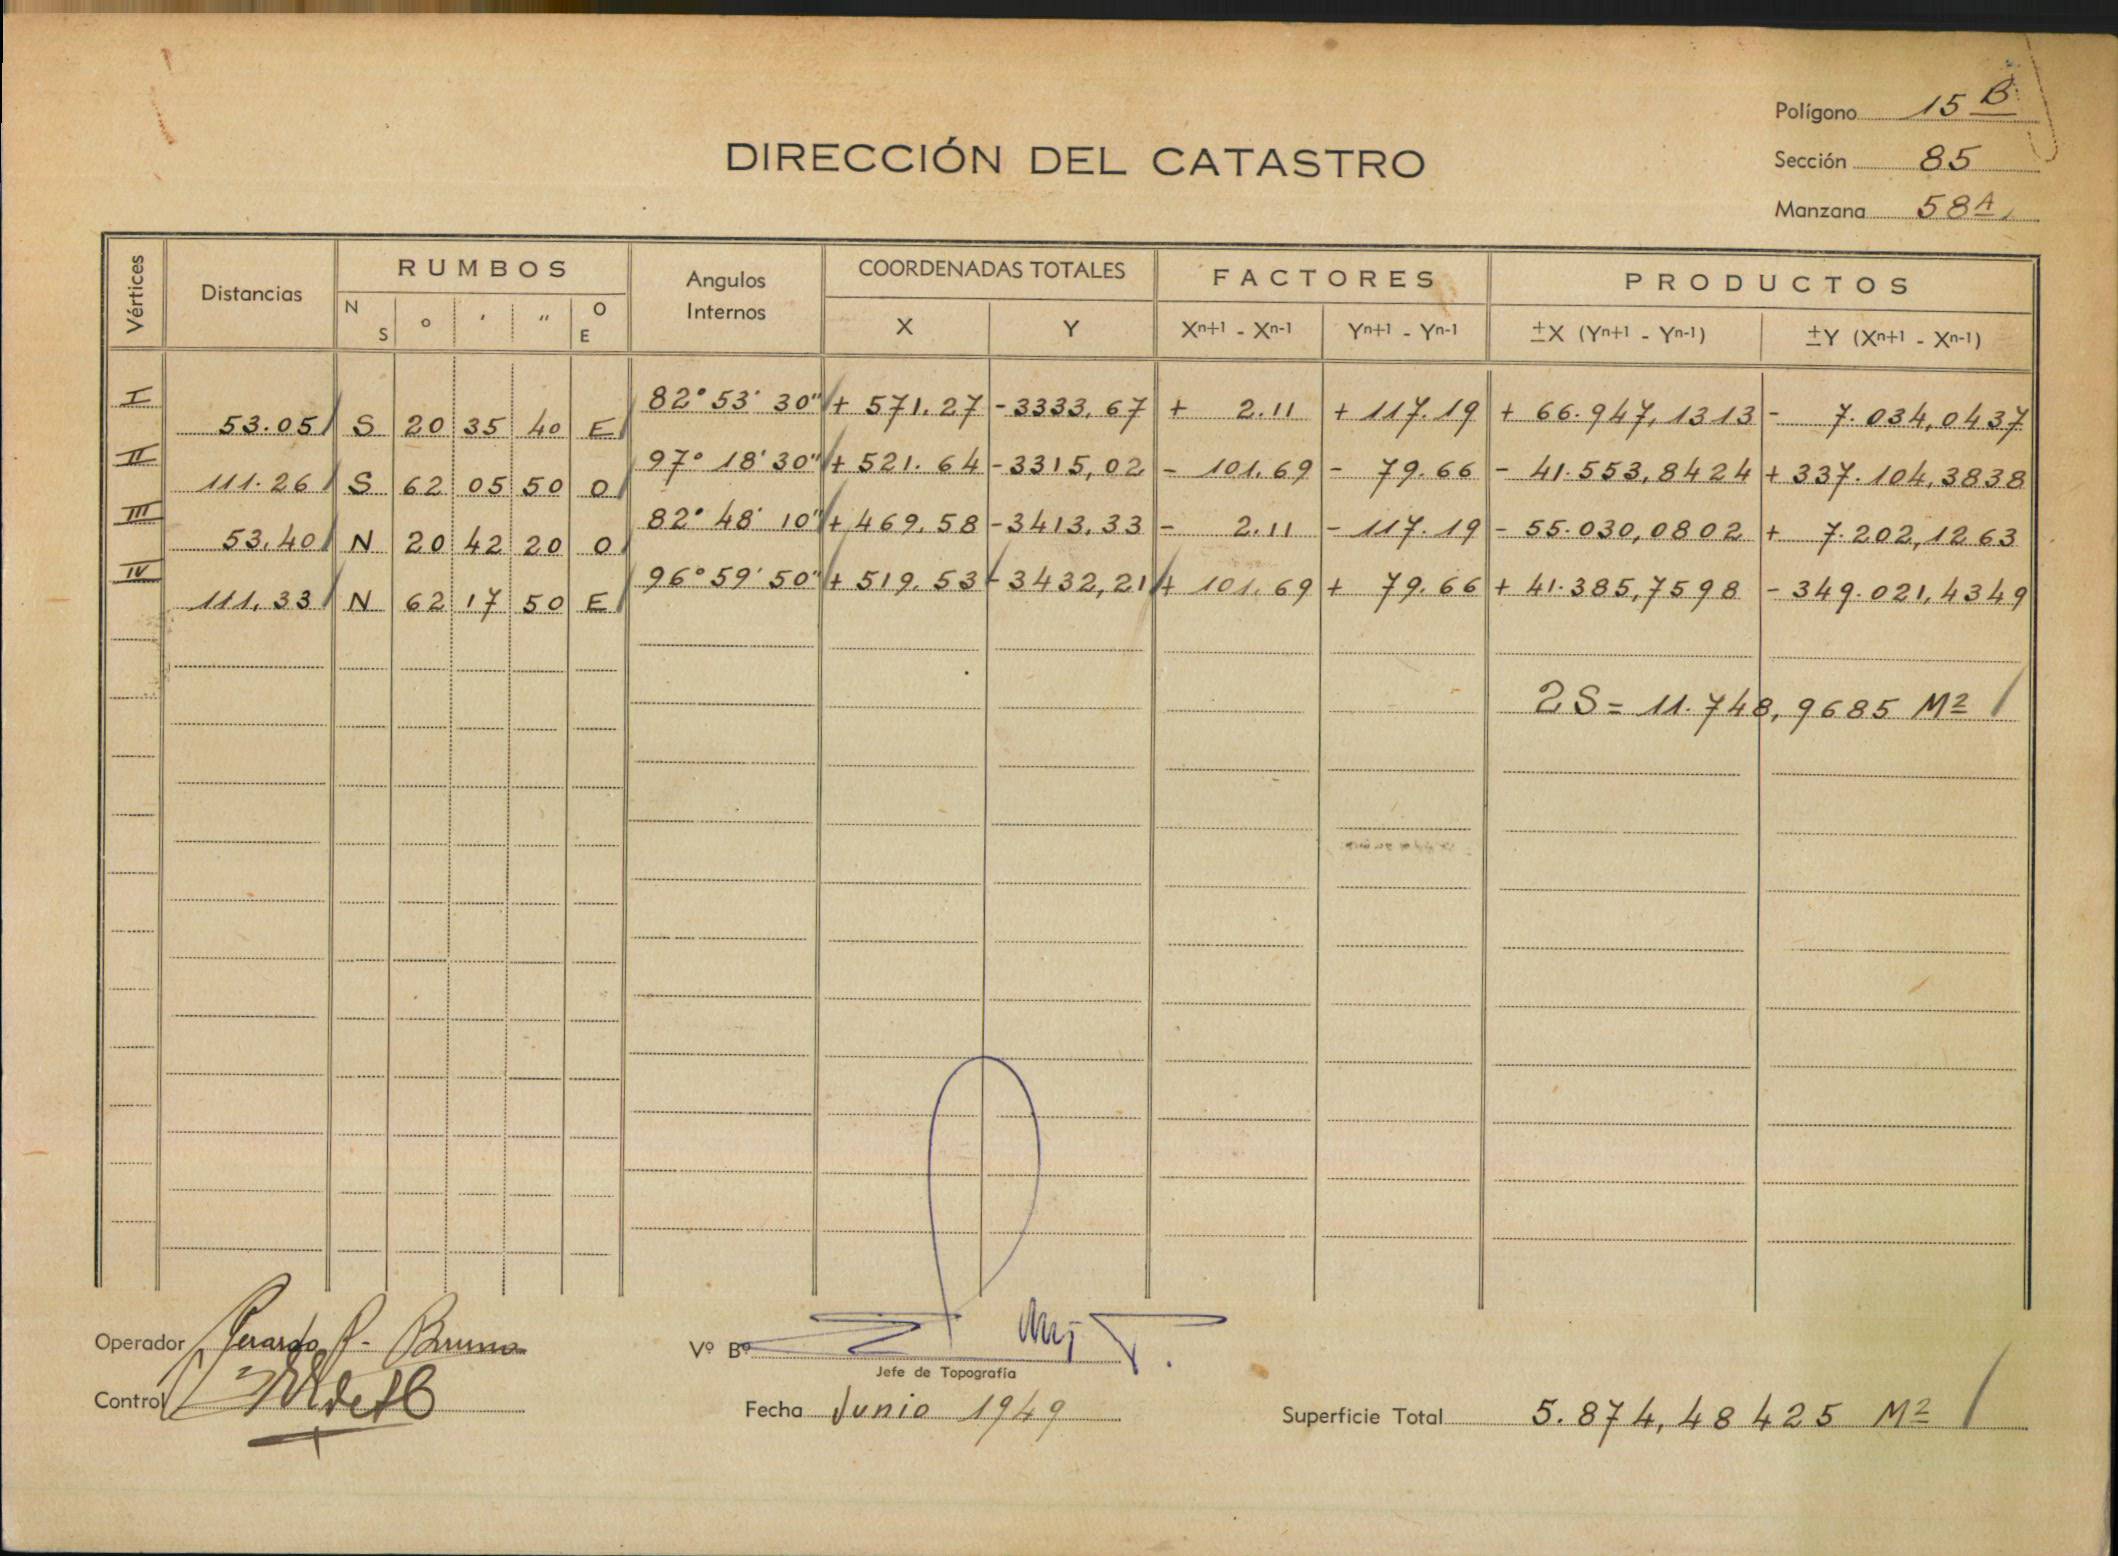 Polígono 15 B
DIRECCIÓN DEL CATASTRO
Sección 85
Manzana 58 A
Vértices Distancias RUMBOS Angulos Internos COORDENADAS TOTALES FACTORES PRODUCTOS
N S ° ' '' O E X Y Xn+1 - Xn-1 Yn+1 - Yn-1 ±X (Yn+1 - Yn-1) ±Y (Xn+1 - Xn-1)
I 82° 53' 30" + 571.27 -3333,67 + 2.11 + 117.19 + 66.947,1313 - 7.034,0437
53.05 S 20 35 40 E
II 97° 18' 30" + 521.64 -3315,02 - 101.69 - 79.66 - 41.553,8424 + 337.104,3838
111.26 S 62 05 50 O
III 82° 48' 10" + 469.58 -3413.33 - 2.11 - 117.19 - 55.030,0802 + 7.202,1263
53,40 N 20 42 20 O
IV 96° 59' 50" + 519.53 - 3432,21 + 101.69 + 79.66 + 41.385,7598 - 349.021,4349
111,33 N 62 17 50 E
2S = 11.748,9685 M2
Operador Gerardo P. Bruno
Vº Bº
Jefe de Topografía
Control
Fecha Junio 1949
Superficie Total 5.874,48425 M2